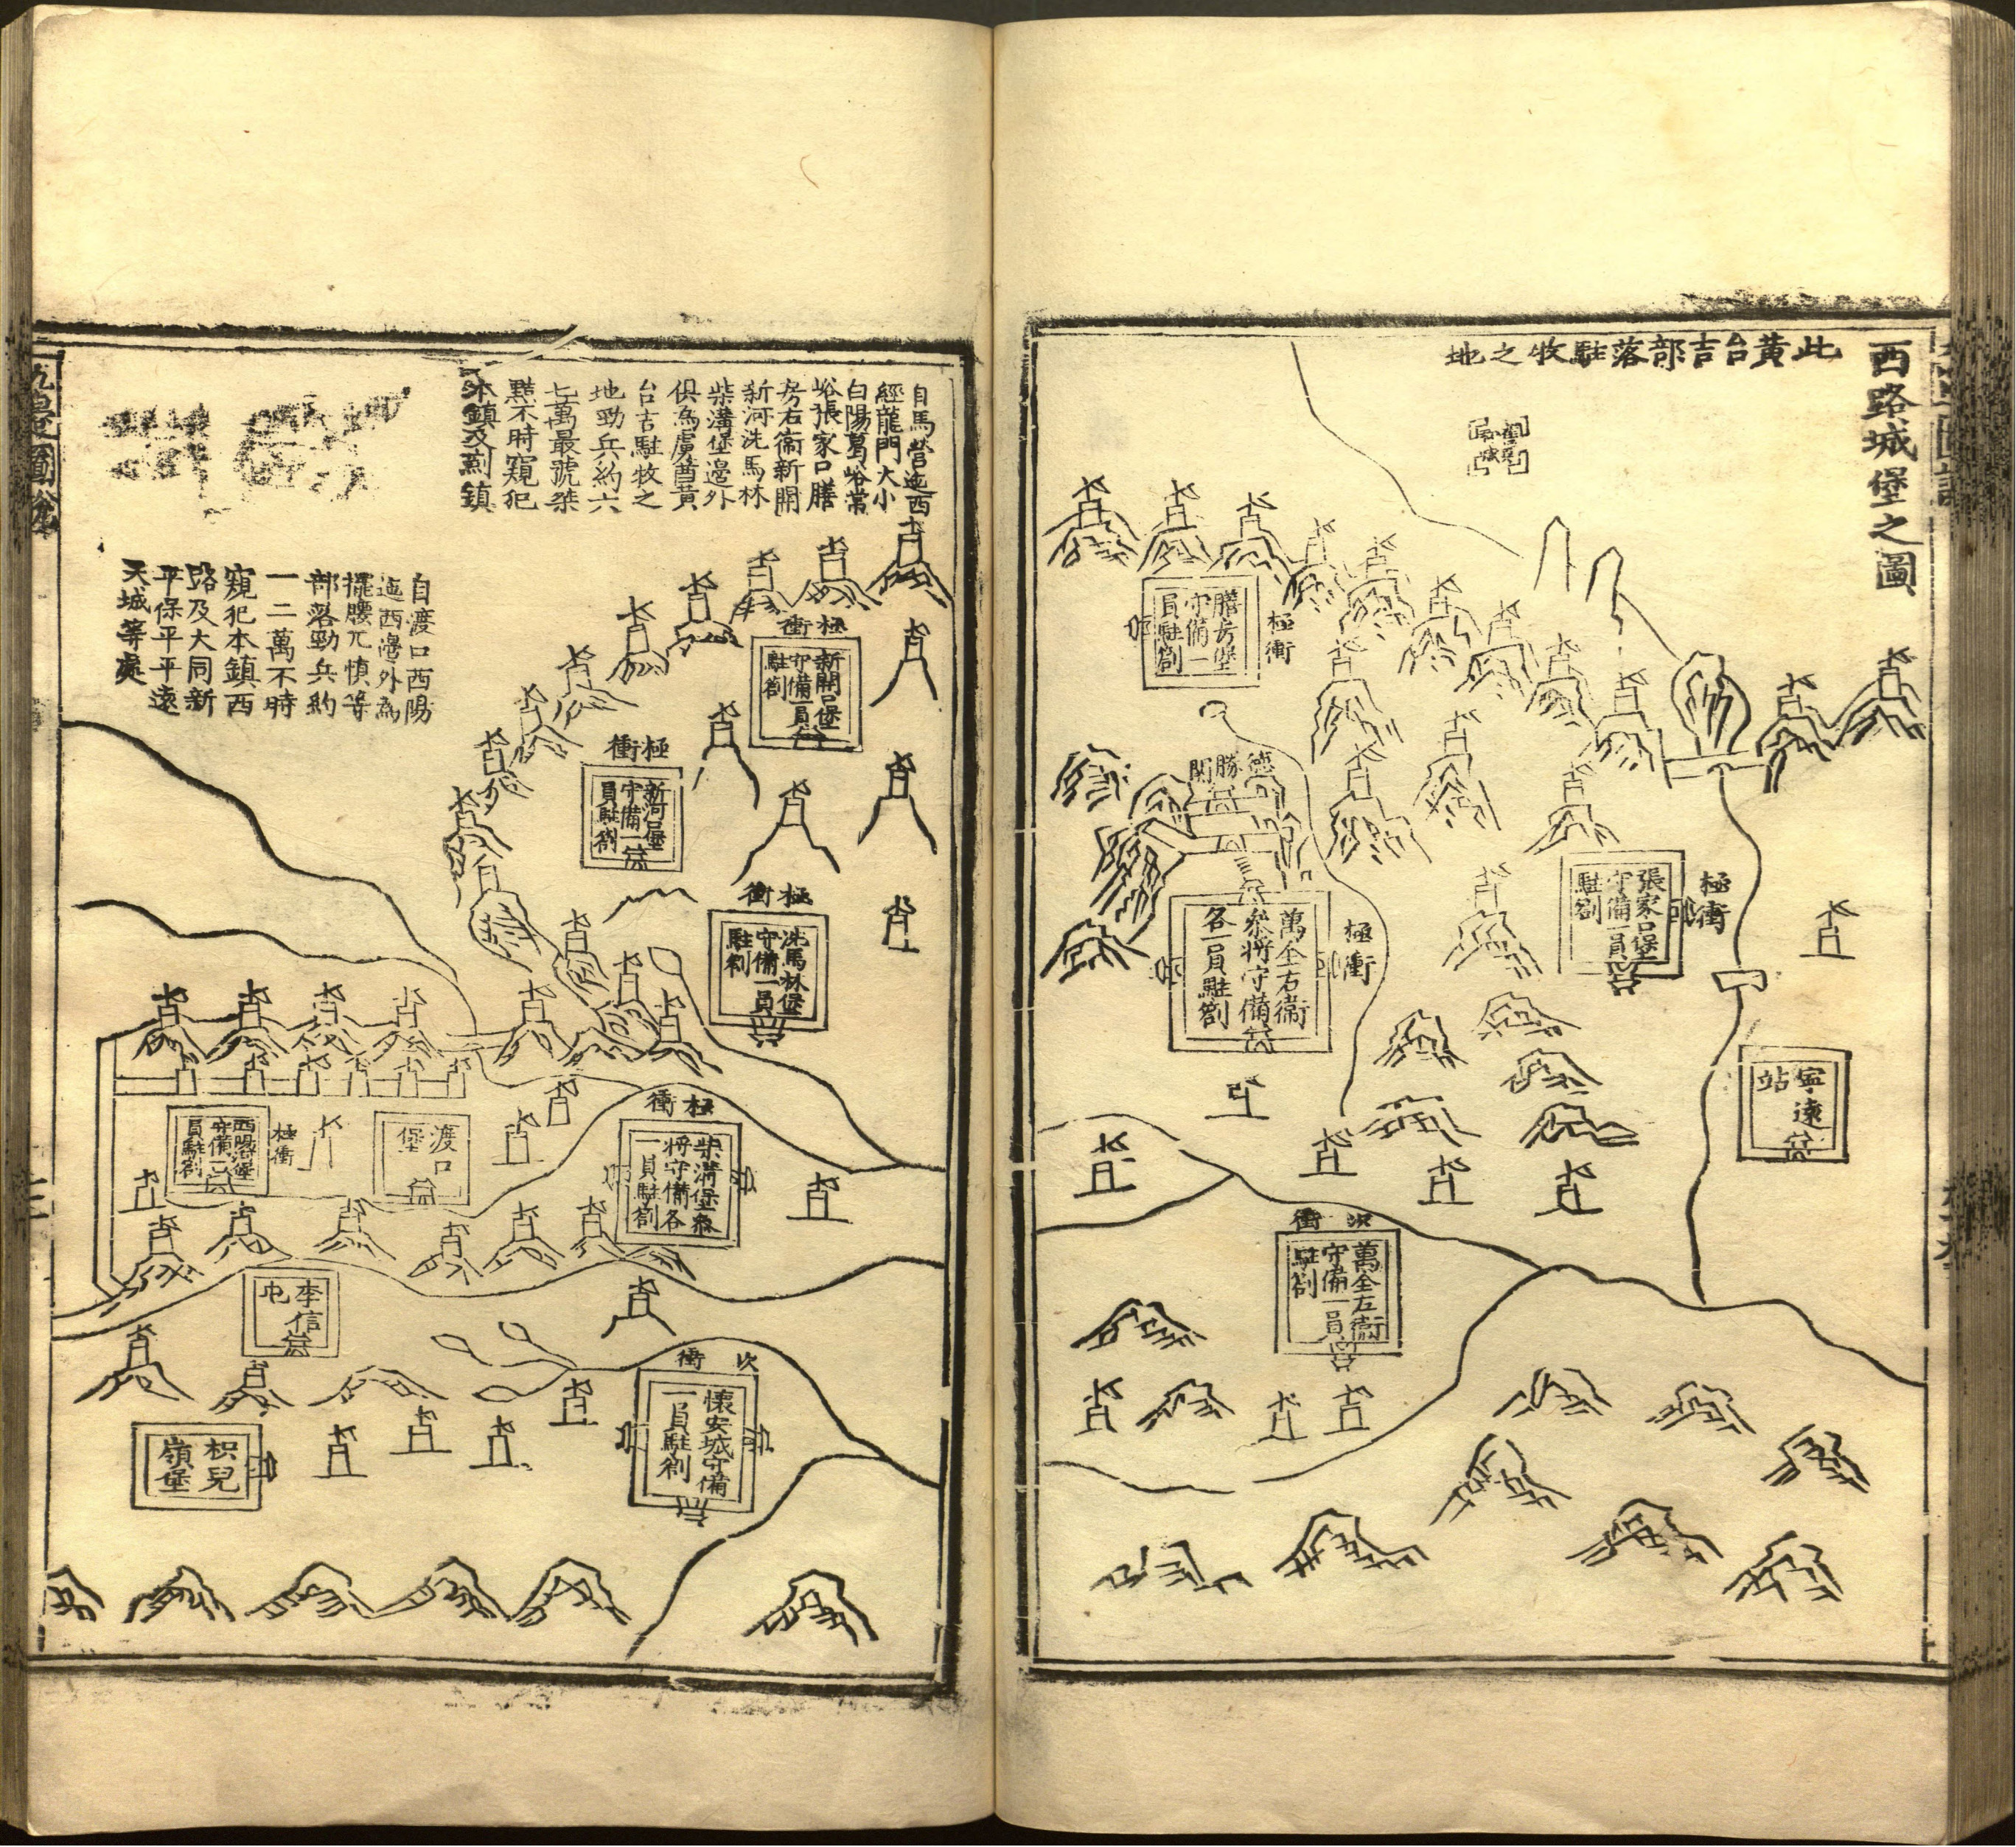 西路城堡之圖
此黃台吉部落駐牧之地
極衝
膳房堡
守備一
員駐劄
德勝關
極衝
張家口堡
守備一員
駐劄
極衝
萬全右衞
叅將守備
各一員駐劄
寧遠
站
次衝
萬全左衞
守備一員
駐劄
自馬營迤西
經龍門大小
白陽葛峪常
峪張家口膳
房右衞新開
新河洗馬林
柴溝堡邊外
俱為虜酋黃
台吉駐牧之
地勁兵約六
七萬最號桀
黠不時窺犯
本鎮及薊鎮
自渡口西陽
迤西邊外為
擺腰兀慎等
部落勁兵約
一二萬不時
窺犯本鎮西
路及大同新
平保平平遠
天城等處
極衝
新開口堡
守備一員
駐劄
極衝
新河口堡
守備一
員駐劄
極衝
洗馬林堡
守備一員
駐劄
極衝
柴溝堡叅
將守備各
一員駐劄
渡口
堡
極衝
西陽河堡
守備一
員駐劄
李信
屯
次衝
懷安城守備
一員駐劄
枳兒
嶺堡
九邊圖說